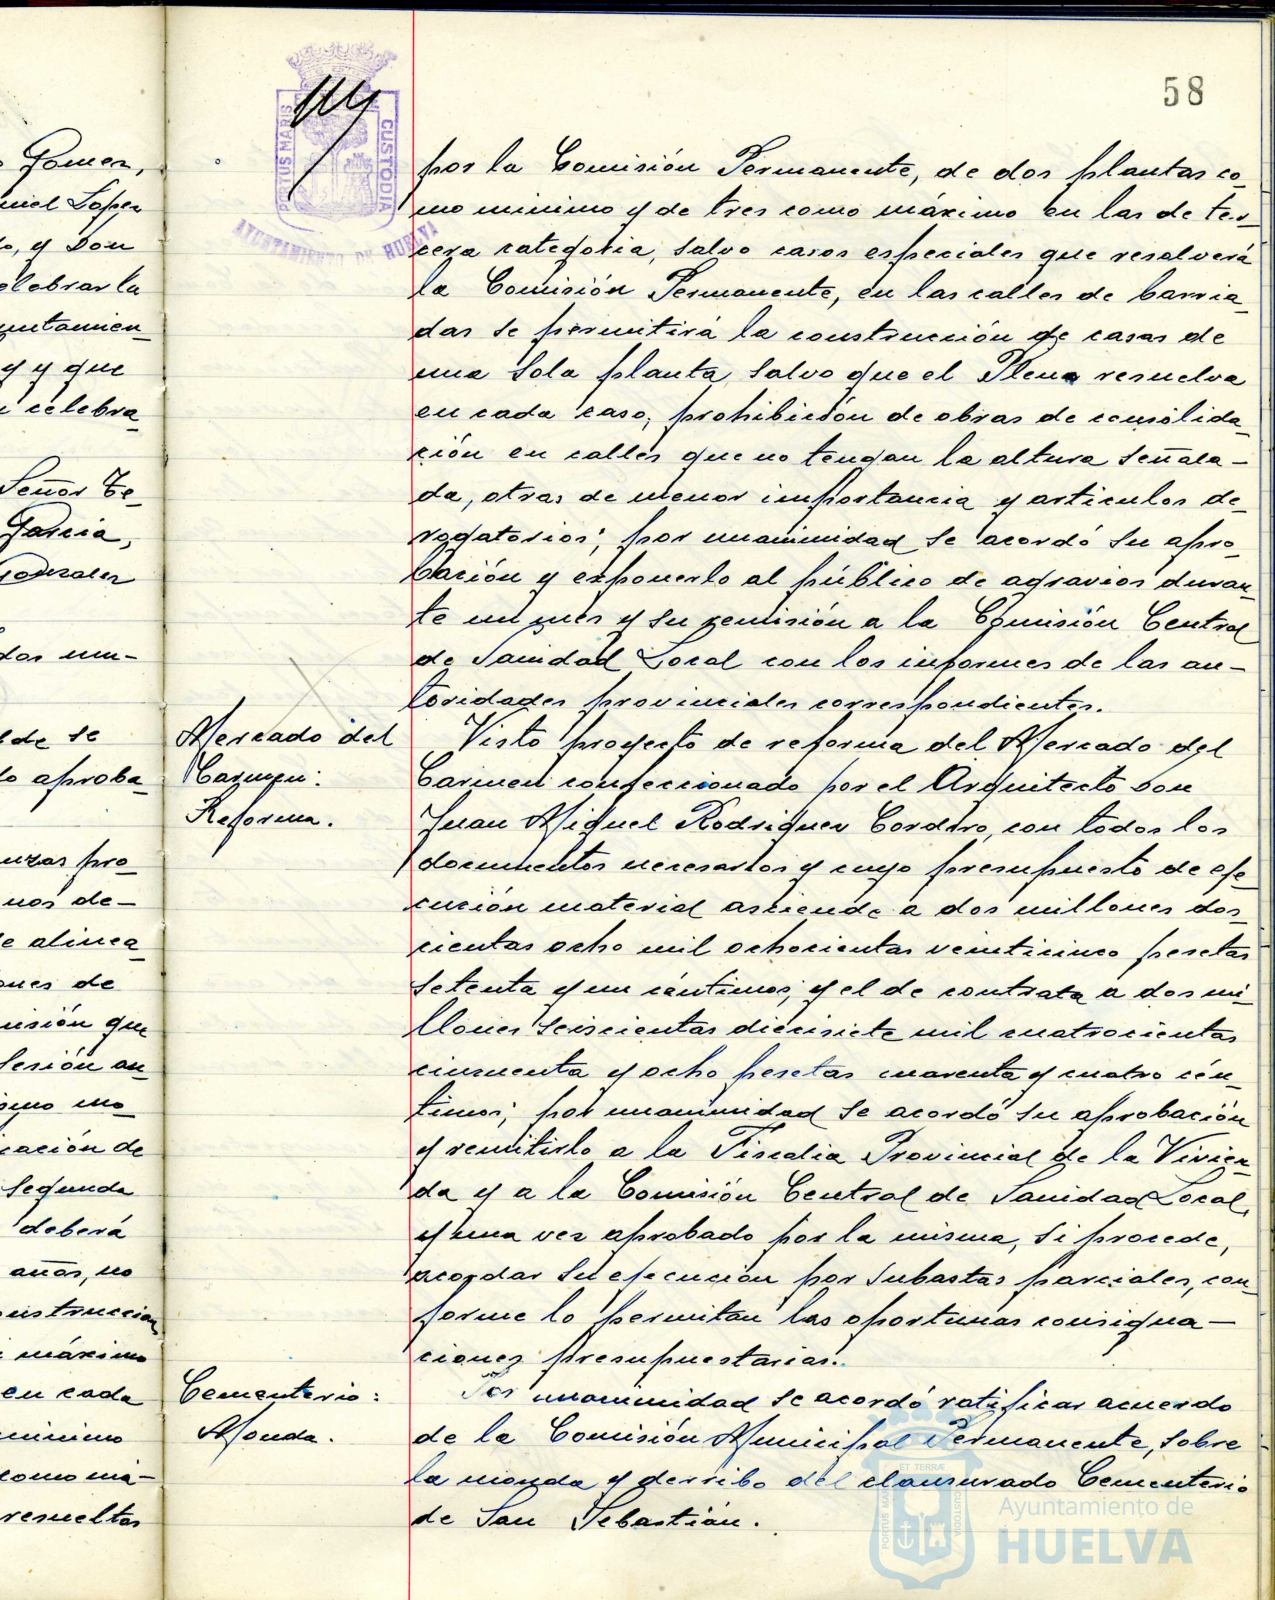 58
PORTUS MARIS
CUSTODIA
AYUNTAMIENTO DE HUELVA
Gomez,
niel Lopez
o, y Don
elebrar la
yuntamien_
y y que
celebra_
Señor Te_
Garcia,
Gonzalez
dos mu-
lde se
lo aproba_
nzas pro_
nos de-
de alinea_
ones de
misión que
Sesión an_
ismo mo_
cación de
segunda
deberá
años, no
onstruccion
máximo
en cada
minimo
como má-
resueltos
por la Comisión Permanente, de dos plantas co_
mo minimo y de tres como máximo en las de ter_
cera categoria, salvo casos especiales que resolverá
la Comisión Permanente, en las calles de barria_
das se permitirá la construcción de casas de
una sola planta, salvo que el Pleno resuelva
en cada caso; prohibición de obras de consolida_
ción en calles que no tengan la altura señala-
da, otras de menor importancia y articulos de_
rogatorios; por unanimidad se acordó su apro_
bación y exponerlo al público de agravios duran_
te un mes y su remisión a la Comisión Central
de Sanidad Local con los informes de las au-
toridades provinciales correspondientes.
Mercado del
Carmen:
Reforma.
Visto proyecto de reforma del Mercado del
Carmen confeccionado por el Arquitecto Don
Juan Miguel Rodriguez Cordero, con todos los
documentos necesarios y cuyo presupuesto de eje_
cución material asciende a dos millones dos_
cientas ocho mil ochocientas veinticinco pesetas
setenta y un céntimos, y el de contrata a dos mi_
llones seiscientas diecisiete mil cuatrocientas
cincuenta y ocho pesetas cuarenta y cuatro cén_
timos; por unanimidad se acordó su aprobación
y remitirlo a la Fiscalia Provincial de la Vivien_
da y a la Comisión Central de Sanidad Local,
y una vez aprobado por la misma, si procede,
acordar su ejecución por subastas parciales, con_
forme lo permitan las oportunas consigna-
ciones presupuestarias.
Cementerio:
Monda.
Por unanimidad se acordó ratificar acuerdo
de la Comisión Municipal Permanente, sobre
la monda y derribo del clausurado Cementerio
de San Sebastián.
Ayuntamiento de
HUELVA